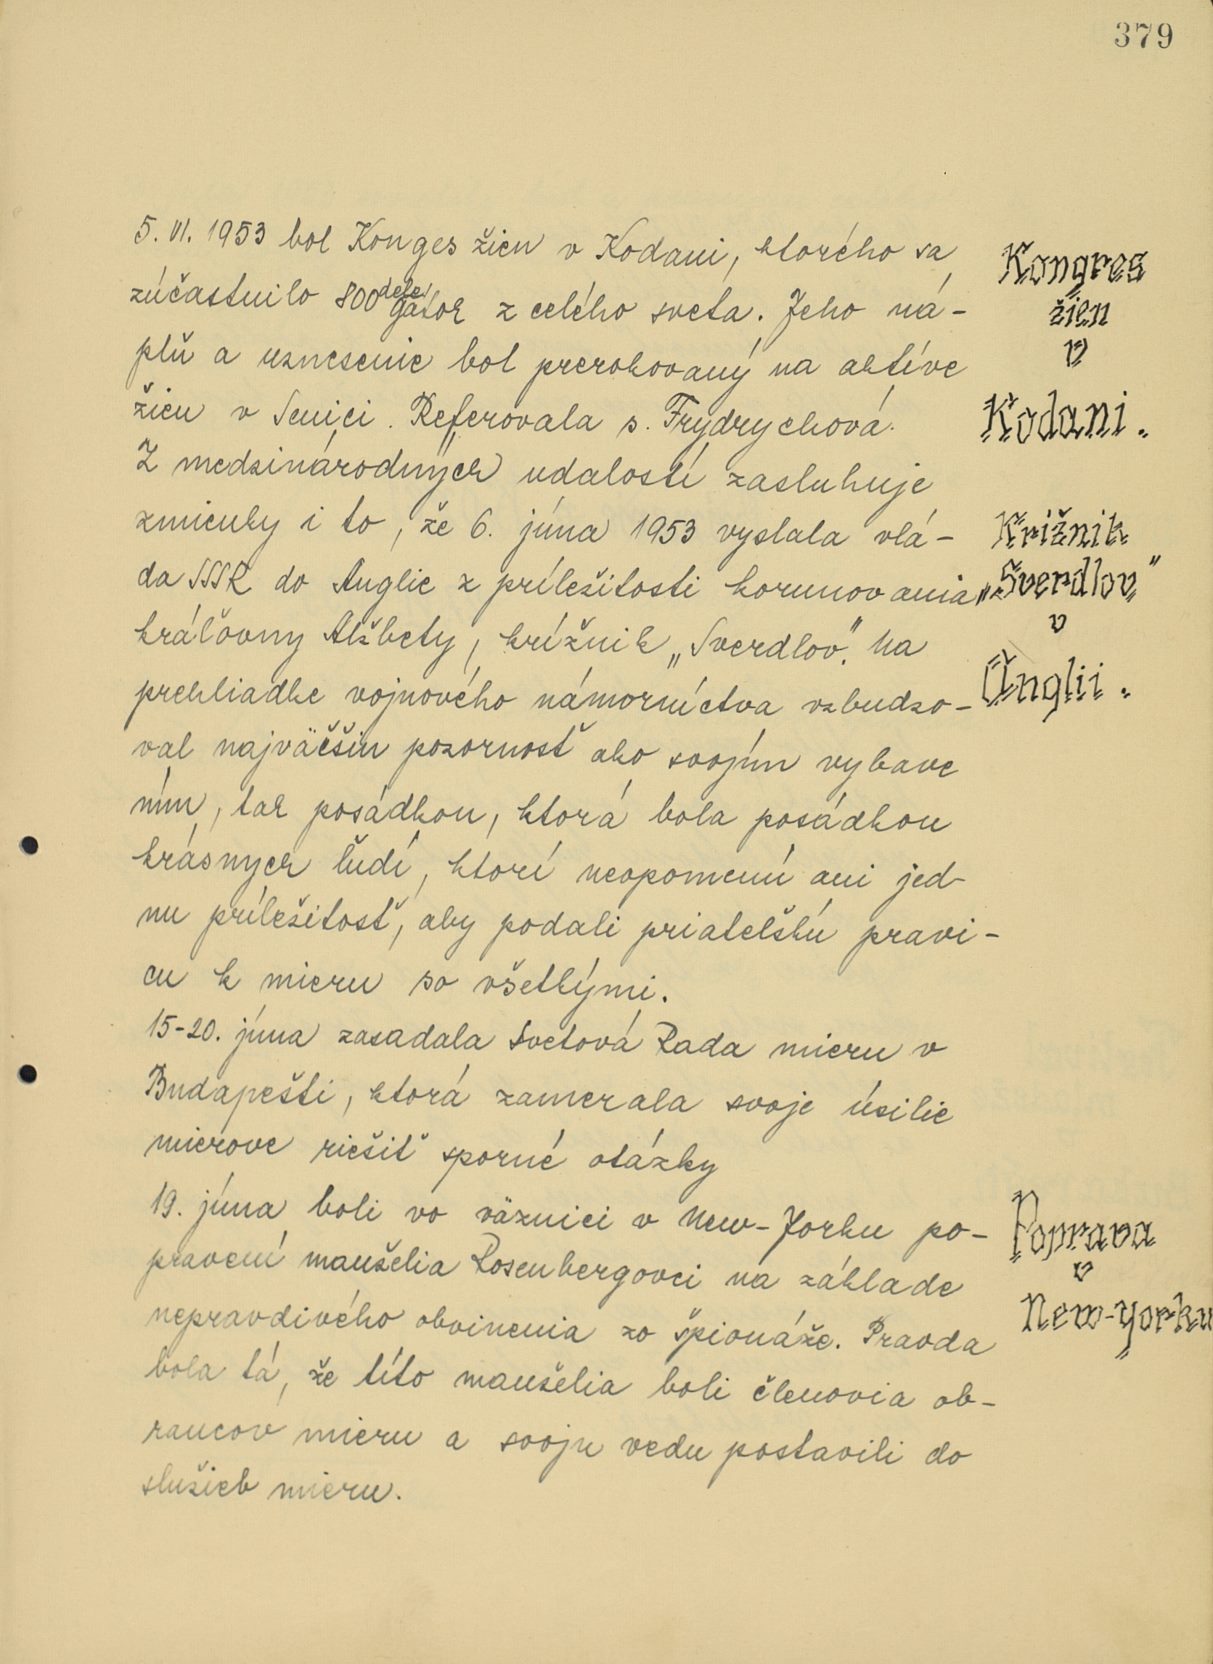 379
5. VI. 1953 bol Konges žien v Kodani, ktorého sa
zúčastnilo 800 delegátok z celého sveta. Jeho ná-
plň a uznesenie bol prerokovaný na aktíve
žien v Senici. Referovala s. Frýdrychová.
Z medzinárodných udalostí zasluhuje
zmienky i to, že 6. júna 1953 vyslala vlá-
da SSSR do Anglie z príležitosti korunovania
kráľovny Alžbety, krížnik „Sverdlov". Na
prehliadke vojnového námorníctva vzbudzo-
val najväčšiu pozornosť ako svojím vybave
ním, tak posádkou, ktorá bola posádkou
krásnych ľudí, ktorí neopomenú ani jed-
nu príležitosť, aby podali priatelškú pravi-
cu k mieru so všetkými.
15-20. júna zasadala Svetová Rada mieru v
Budapešti, ktorá zamerala svoje úsilie
mierove riešiť sporné otázky
19. júna boli vo väznici v New-Jorku po-
pravení manželia Rosenbergovci na základe
nepravdivého obvinenia zo špionáže. Pravda
bola tá, že títo manželia boli členovia ob-
rancov mieru a svoju vedu postavili do
služieb mieru.
Kongres
žien
v
Kodani.
Krížnik
„Sverdlov"
v
Anglii.
Poprava
v
New-Yorku